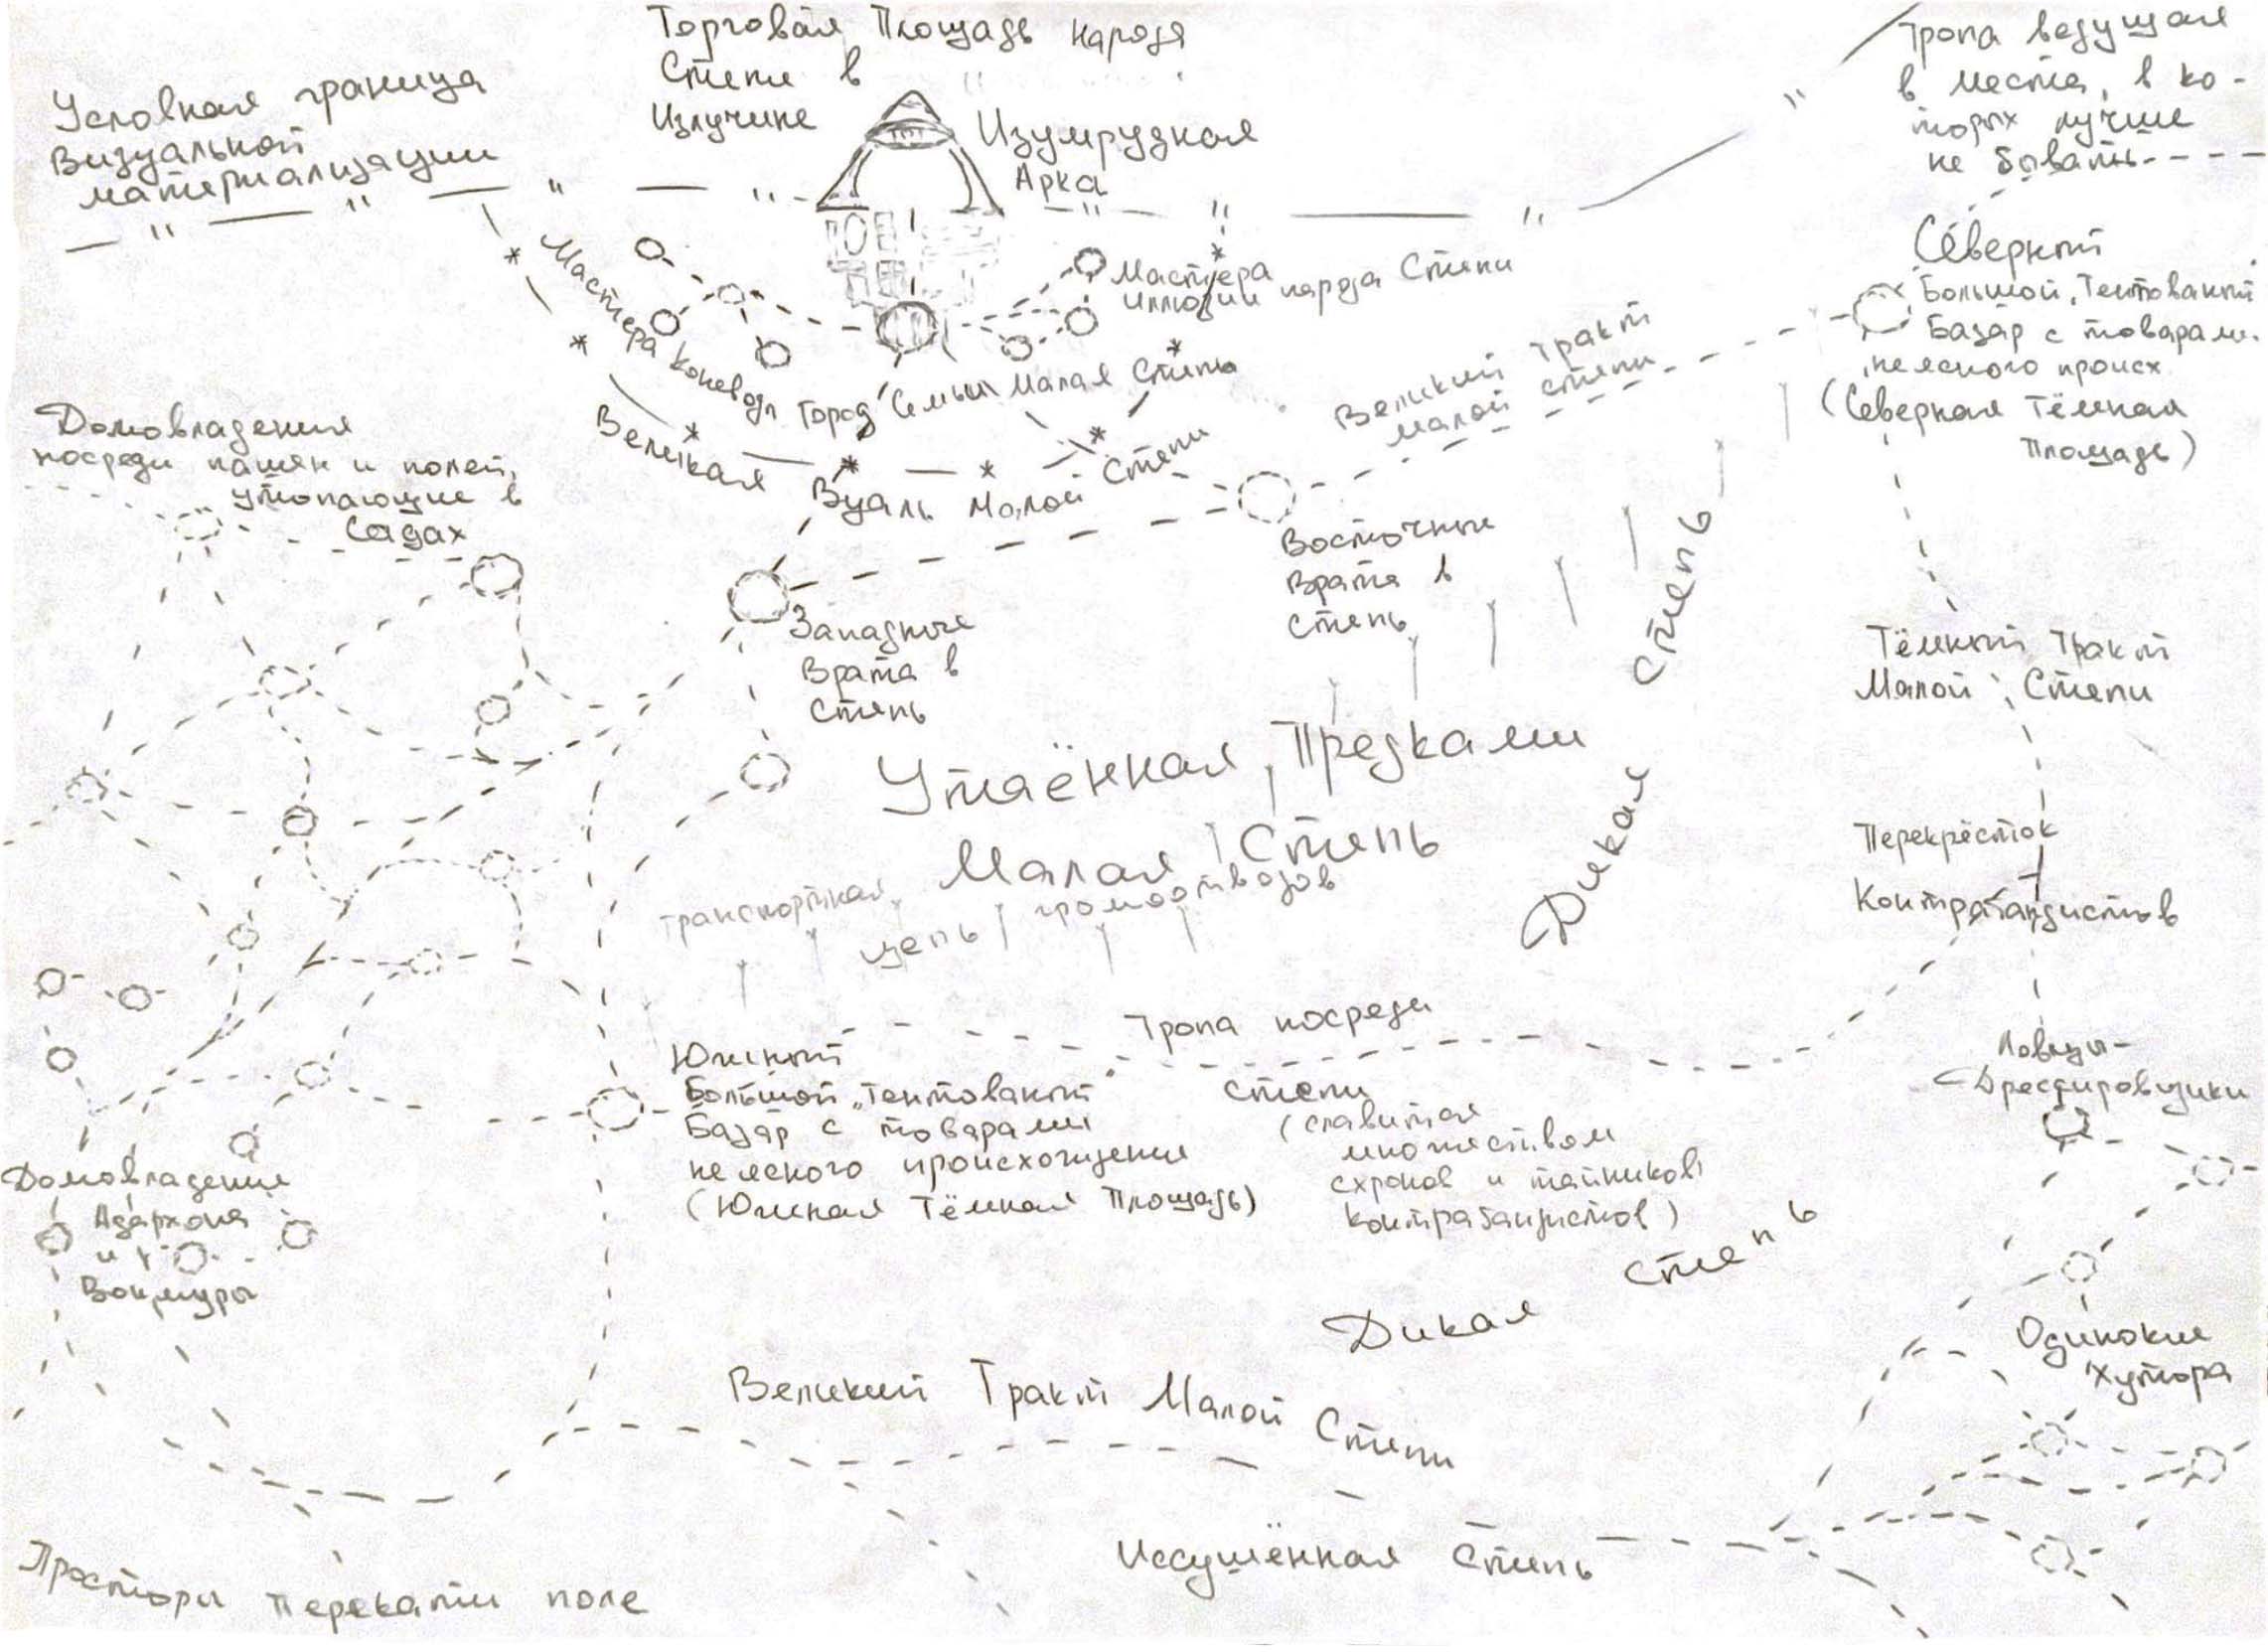 Торговая Площадь народа
Степи в
Излучине
Условная граница
Визуальной
материализации
Изумрудная
Арка
Тропа ведущая
в места, в ко-
торых лучше
не бывать
Мастера
иллюзии народа Степи
Мастера коневоды
Город Семьи Малая Степь
Великая Вуаль Малой Степи
Великий Тракт
Малой Степи
Северный
Большой „Тентованый
Базар с товарами
неясного происх
(Северная Тёмная
Площадь)
Домовладения
посреди пашен и полей,
утопающие в
Садах
Восточные
Врата в
Степь
Западные
Врата в
Степь
Дикая Степь
Тёмный Тракт
Малой Степи
Утаённая Предками
Малая Степь
Транспортная
цепь громоотводов
Перекрёсток
Контрабандистов
Тропа посреди
Степи
(славится
множеством
схронов и тайников
контрабандистов)
Южный
Большой „Тентованый
Базар с товарами
неясного происхождения
(Южная Тёмная Площадь)
Ловцы-
Дрессировщики
Домовладения
Адархона
и
Дикая Степь
Одинокие
Хутора
Великий Тракт Малой Степи
Иссушённая Степь
Просторы перекати поле